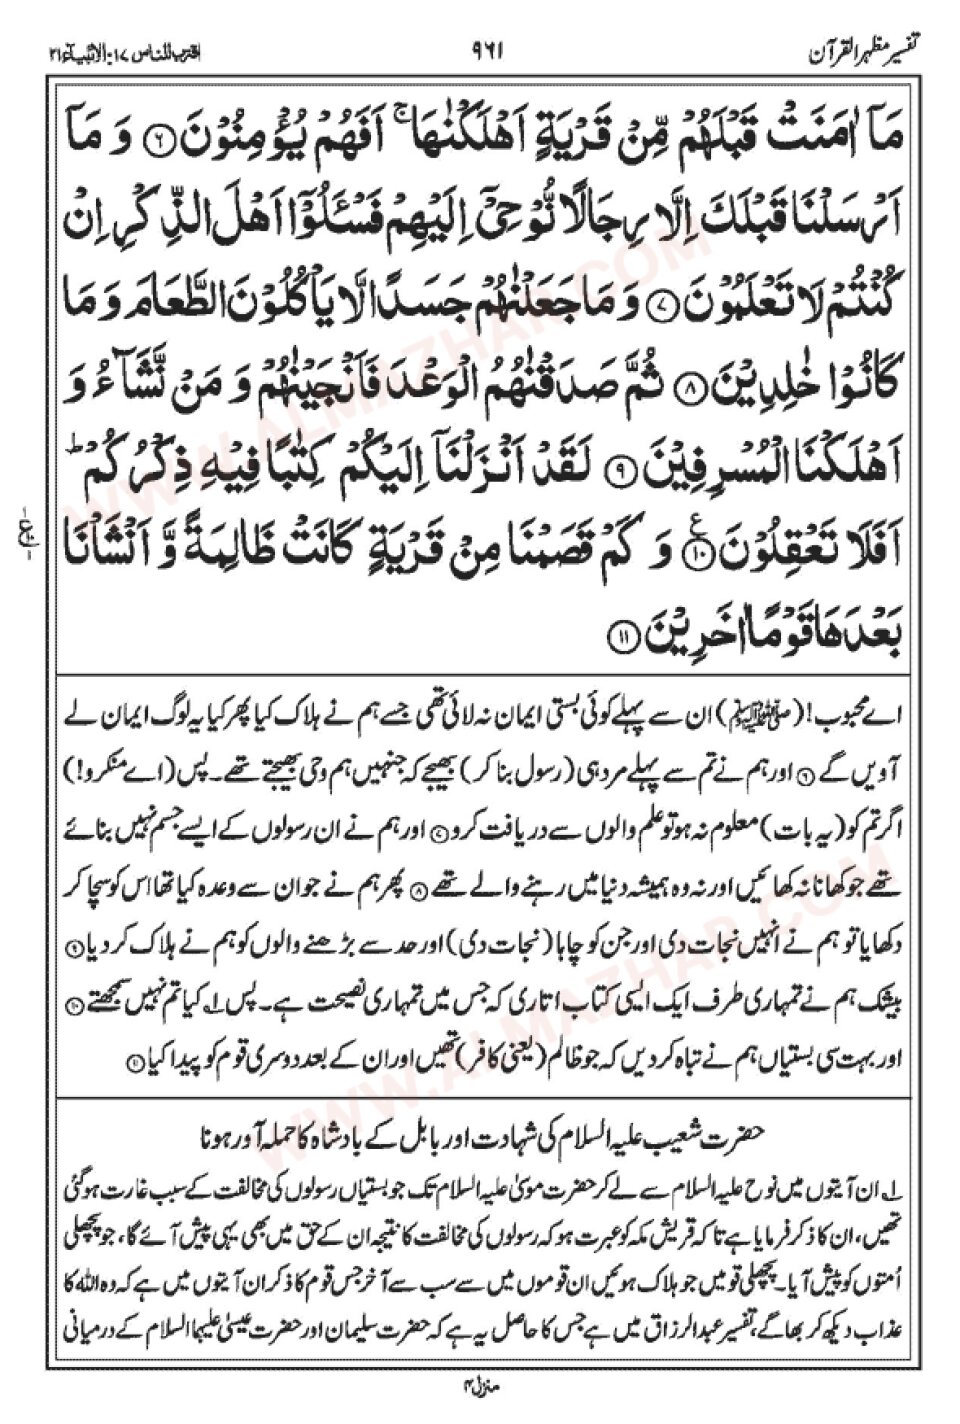 تفسیر مظہر القرآن
۹۶۱
اقترب للناس ۱۷: الانبیآء ۲۱
مَآ اٰمَنَتْ قَبْلَهُمْ مِّنْ قَرْيَةٍ اَهْلَكْنٰهَا ۚ اَفَهُمْ يُؤْمِنُوْنَ ۶ وَ مَآ
اَرْسَلْنَا قَبْلَكَ اِلَّا رِجَالًا نُّوْحِيْٓ اِلَيْهِمْ فَسْـَٔلُوْٓا اَهْلَ الذِّكْرِ اِنْ
كُنْتُمْ لَا تَعْلَمُوْنَ ۷ وَ مَا جَعَلْنٰهُمْ جَسَدًا لَّا يَاْكُلُوْنَ الطَّعَامَ وَ مَا
كَانُوْا خٰلِدِيْنَ ۸ ثُمَّ صَدَقْنٰهُمُ الْوَعْدَ فَاَنْجَيْنٰهُمْ وَ مَنْ نَّشَآءُ وَ
اَهْلَكْنَا الْمُسْرِفِيْنَ ۹ لَقَدْ اَنْزَلْنَآ اِلَيْكُمْ كِتٰبًا فِيْهِ ذِكْرُكُمْ ؕ
اَفَلَا تَعْقِلُوْنَ ۱۰ ع وَ كَمْ قَصَمْنَا مِنْ قَرْيَةٍ كَانَتْ ظَالِمَةً وَّ اَنْشَاْنَا
بَعْدَهَا قَوْمًا اٰخَرِيْنَ ۱۱
اے محبوب! (ﷺ) ان سے پہلے کوئی بستی ایمان نہ لائی تھی جسے ہم نے ہلاک کیا پھر کیا یہ لوگ ایمان لے
آویں گے ۶ اور ہم نے تم سے پہلے مرد ہی (رسول بنا کر) بھیجے کہ جنہیں ہم وحی بھیجتے تھے۔ پس (اے منکرو!)
اگر تم کو (یہ بات) معلوم نہ ہو تو علم والوں سے دریافت کرو ۷ اور ہم نے ان رسولوں کے ایسے جسم نہیں بنائے
تھے جو کھانا نہ کھائیں اور نہ وہ ہمیشہ دنیا میں رہنے والے تھے ۸ پھر ہم نے جو ان سے وعدہ کیا تھا اس کو سچا کر
دکھایا تو ہم نے انہیں نجات دی اور جن کو چاہا (نجات دی) اور حد سے بڑھنے والوں کو ہم نے ہلاک کر دیا ۹
بیشک ہم نے تمہاری طرف ایک ایسی کتاب اتاری کہ جس میں تمہاری نصیحت ہے۔ پس ۱؎ کیا تم نہیں سمجھتے ۱۰
اور بہت سی بستیاں ہم نے تباہ کر دیں کہ جو ظالم (یعنی کافر) تھیں اور ان کے بعد دوسری قوم کو پیدا کیا ۱۱
حضرت شعیب علیہ السلام کی شہادت اور بابل کے بادشاہ کا حملہ آور ہونا
۱؎ ان آیتوں میں نوح علیہ السلام سے لے کر حضرت موسیٰ علیہ السلام تک جو بستیاں رسولوں کی مخالفت کے سبب غارت ہو گئی
تھیں، ان کا ذکر فرمایا ہے تاکہ قریش مکہ کو عبرت ہو کہ رسولوں کی مخالفت کا نتیجہ ان کے حق میں بھی یہی پیش آئے گا، جو پچھلی
اُمتوں کو پیش آیا۔ پچھلی قومیں جو ہلاک ہوئیں ان قوموں میں سے سب سے آخر جس قوم کا ذکر ان آیتوں میں ہے کہ وہ اللہ کا
عذاب دیکھ کر بھاگے، تفسیر عبدالرزاق میں ہے جس کا حاصل یہ ہے کہ حضرت سلیمان اور حضرت عیسیٰ علیہما السلام کے درمیانی
منزل ۴
WWW.ALMAZHAR.COM
WWW.ALMAZHAR.COM